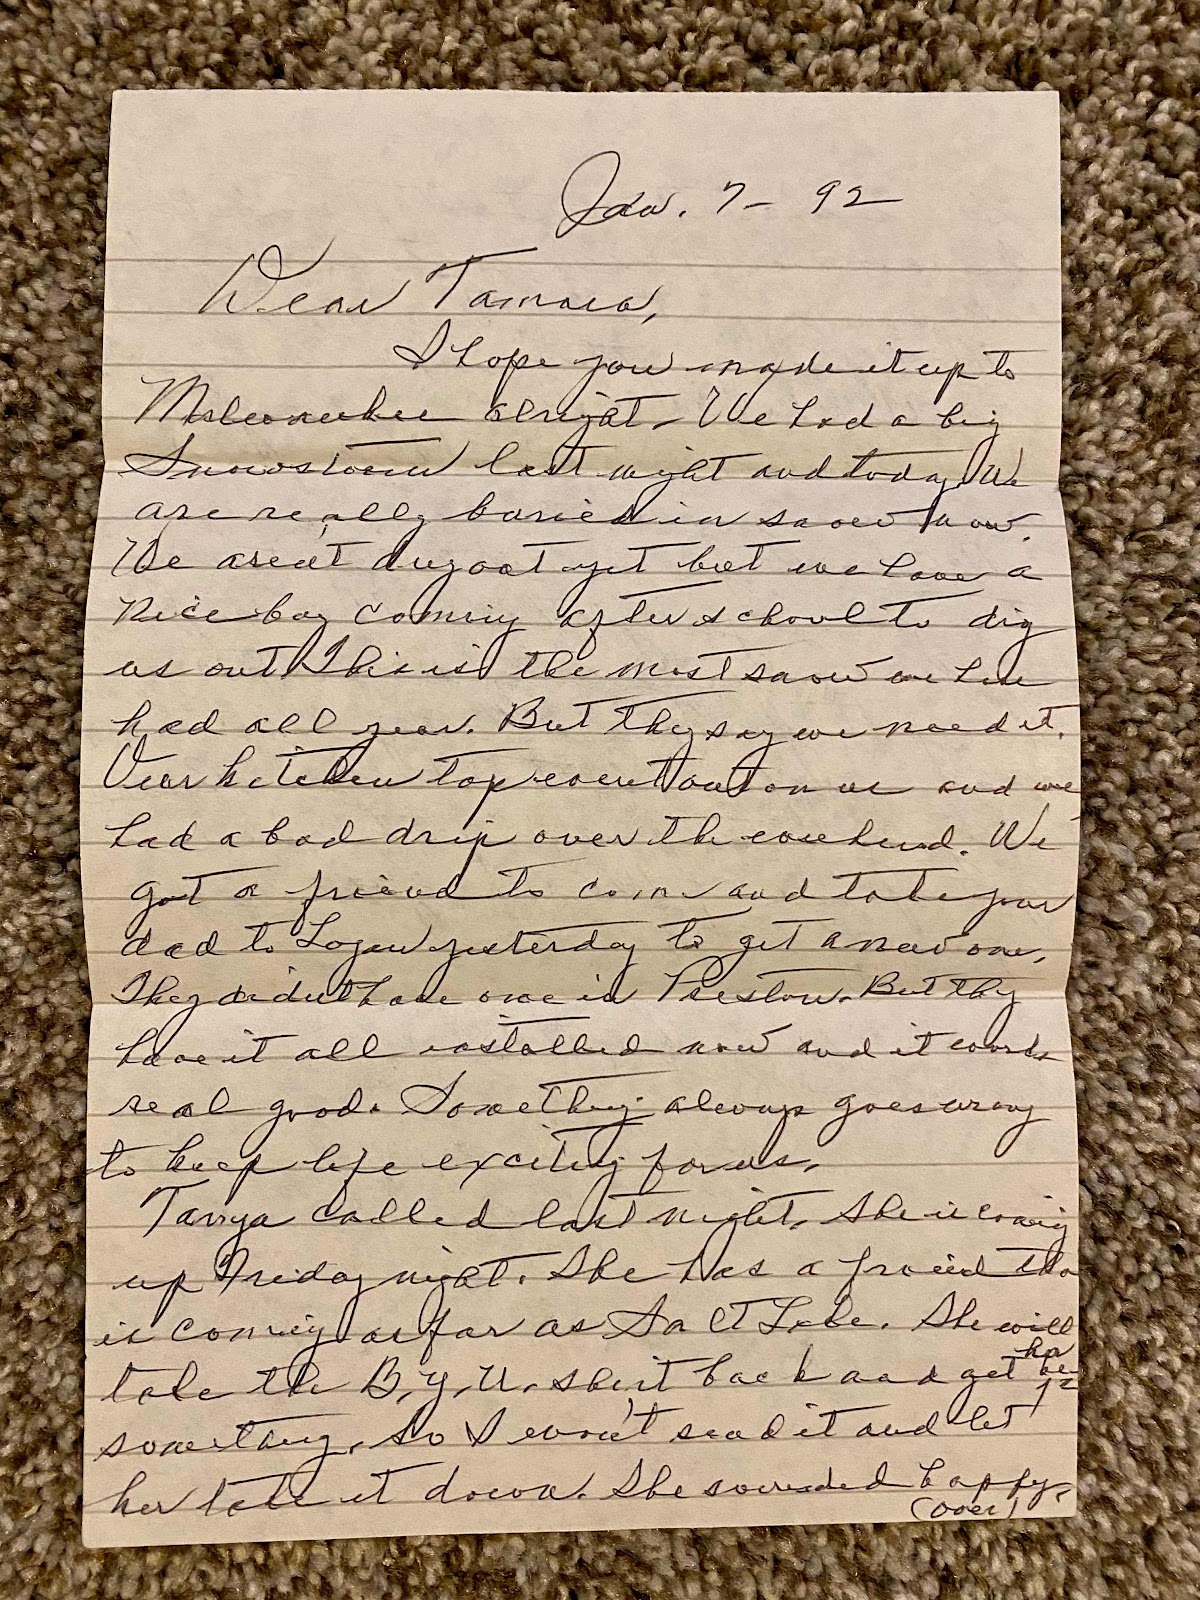 Jan. 7 - 92
Dear Tamara,
I hope you made it up to
Milwaukee alright. We had a big
Snowstorm last night and today. We
are really buried in snow now.
We aren't dug out yet but we have a
nice boy coming after school to dig
us out. This is the most snow we have
had all year. But they say we need it.
Our kitchen tap went out on us and we
had a bad drip over the weekend. We
got a friend to come and take your
dad to Logan yesterday to get a new one.
They didn't have one in Preston. But they
have it all installed now and it works
real good. Something always goes wrong
to keep life exciting for us.
Tanya called last night. She is coming
up Friday night. She has a friend tha
is coming as far as Salt Lake. She will
take the B.Y.U. shirt back and get
something. So I won't send it and let
her take it down. She sounded happy.
(over)